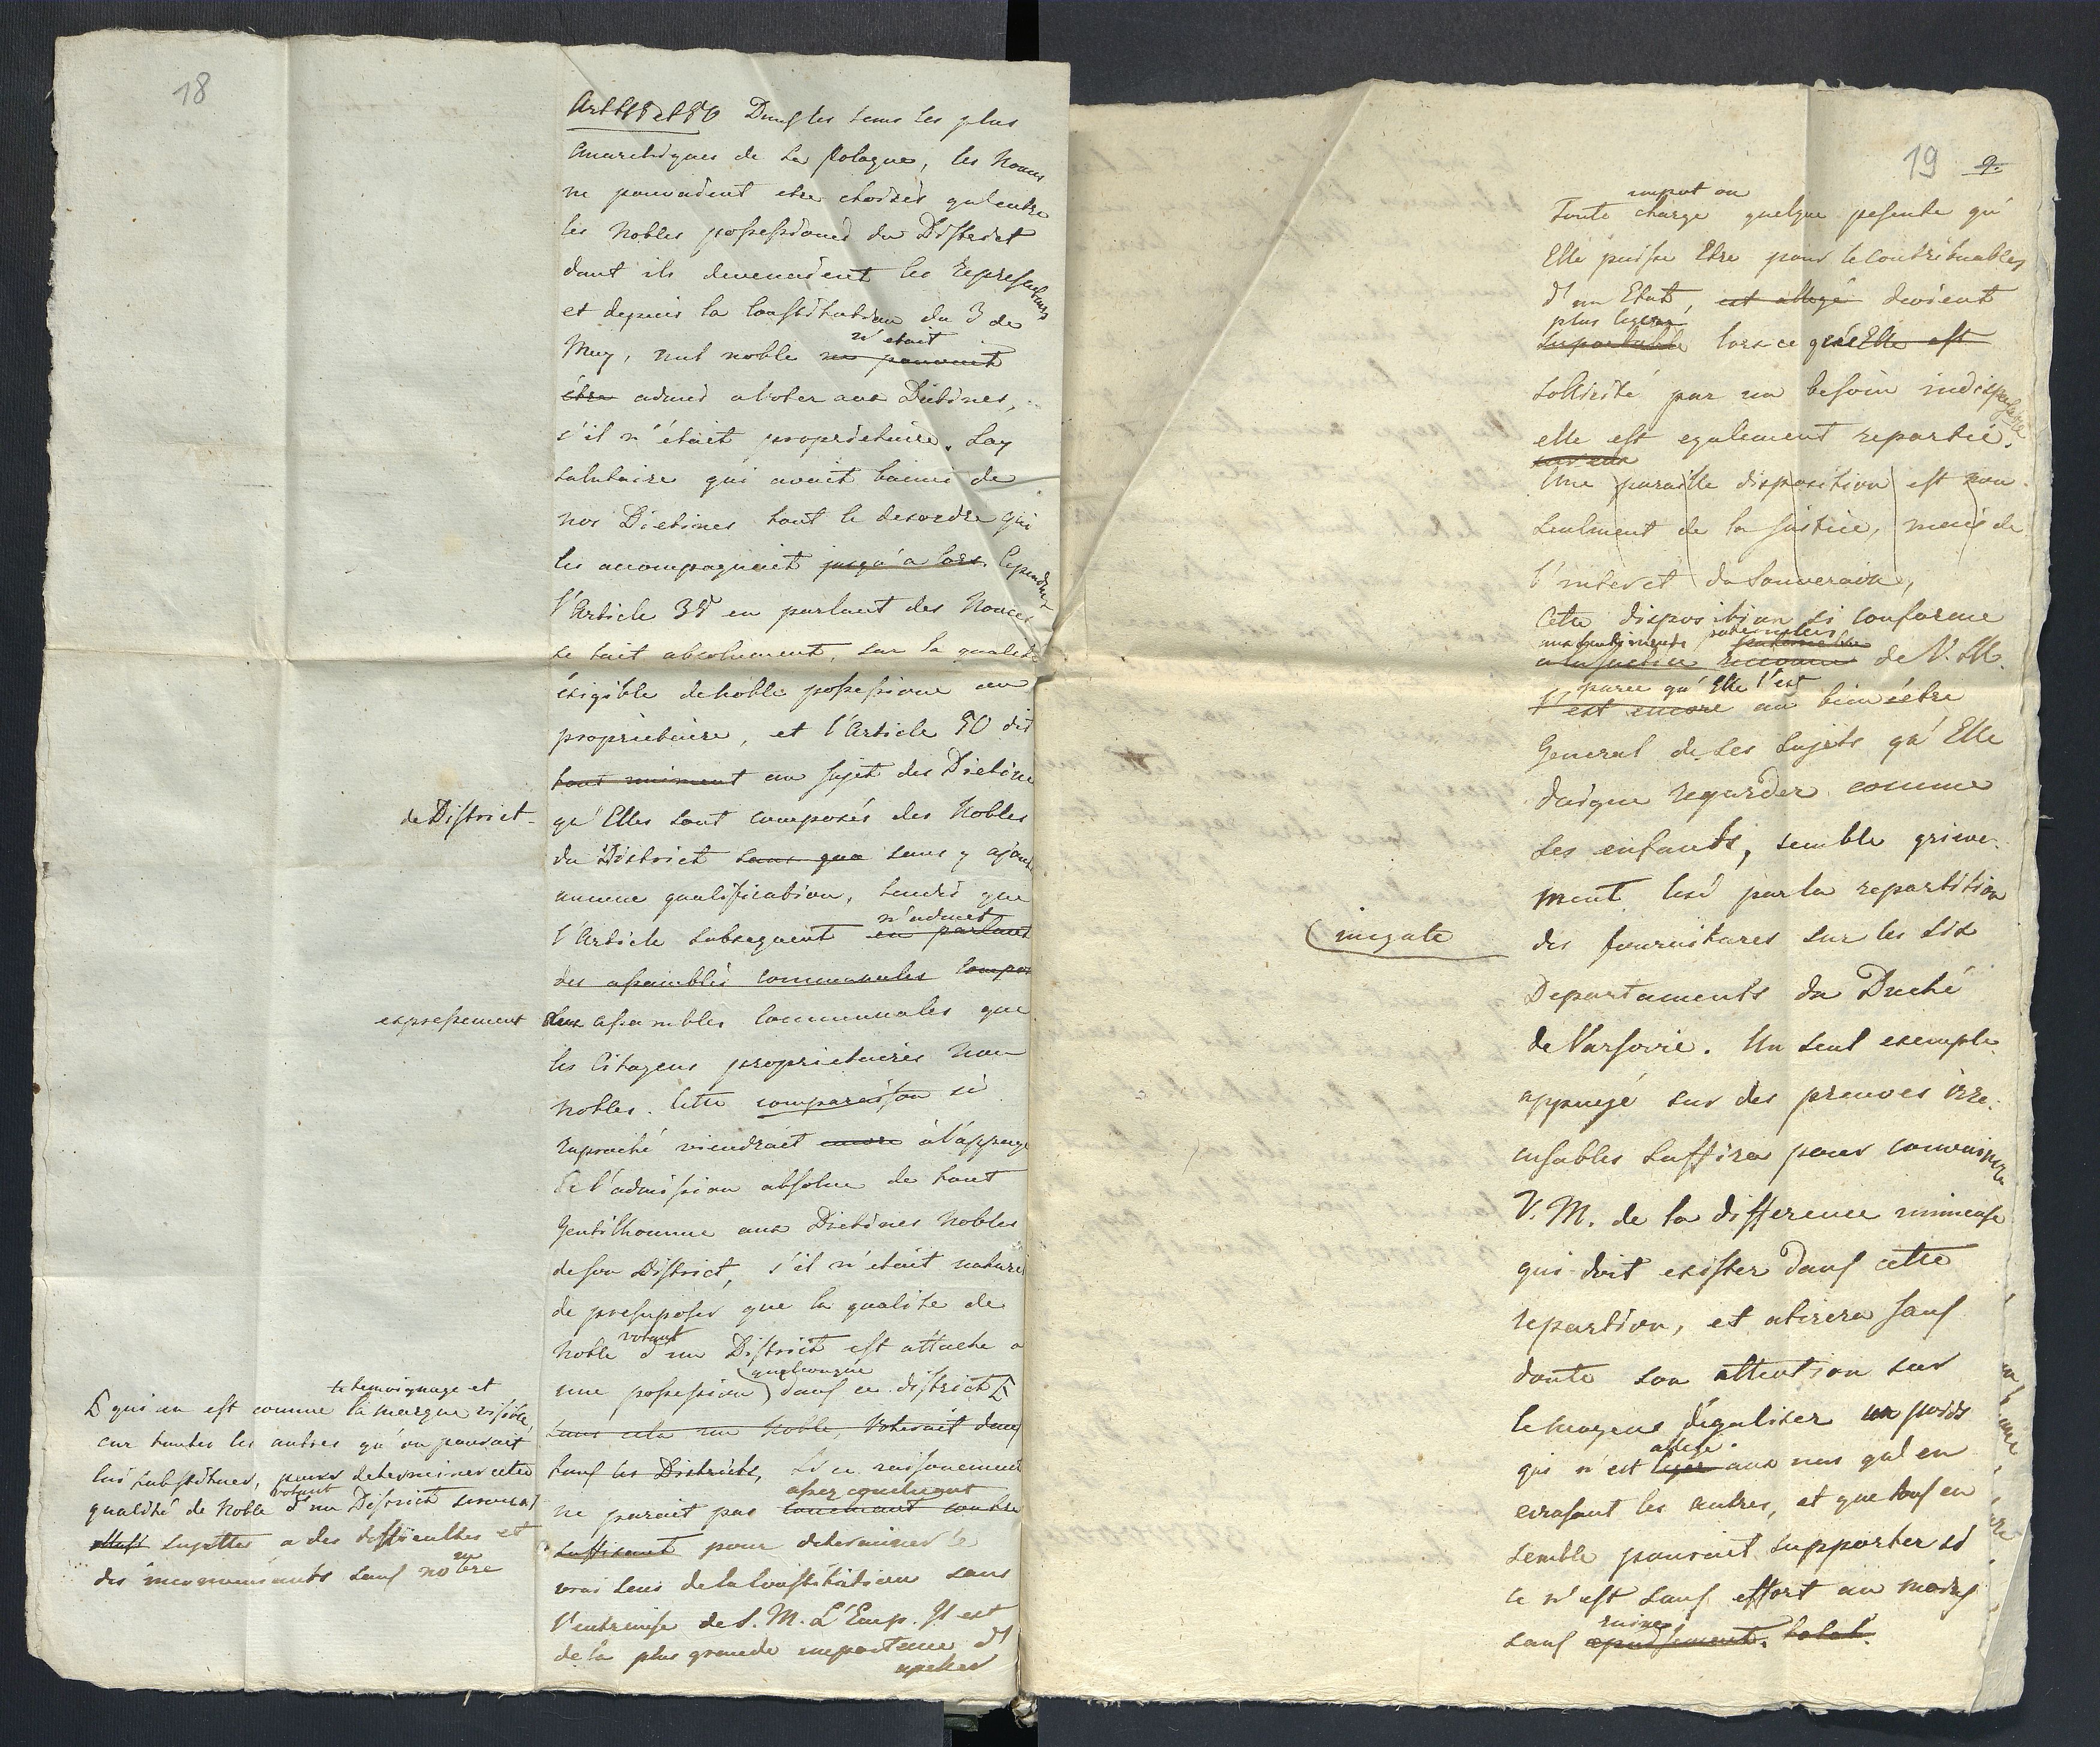 18
Dans les tems les plus
Anarchiques de la Pologne, les Nonces
ne pouvaient etre choisis qu'entre
les Nobles possessionés du District
dont ils devenaient les represent
et depuis la Constitution du 3 de
n'etait
May, nul noble ne pouvait
être admis a voter aux Dietines,
s'il n'était proprietaire. Loy
salutaire qui avait banni de
nos Dietines tout le desordre qui
les accompagnait jusqu'a lors. Cependant
l'Article 35 en parlant des Nonces
se tait absolument, sur la qualité
éxigible de noble possessioné ou
proprietaire, et l'Article 50 dit
tout uniment au sujet des Dietine
de District
qu'Elles sont composés des Nobles
du District sans que sans y ajout
aucune qualification, tandis que
n'admet
l'Article subsequent en parlant
des assemblés communales compos
expressement
aux assembles Communales que
les Citoyens proprietaires non
nobles. Cette comparaison si
raproché viendrait encore à l'appuye
de l'admission absolue de tout
Gentilhomme aux Dietines Nobles
de son District, s'il n'etait naturel
de presuposer que la qualite de
votant
Noble d'un District est attache a
quelconque
une possession dans ce district
sans cela un Noble, Voterait dans
tous les Districts, Si ce raisonement
assez concluant
ne parait pas concluant contre
suffisant pour determiner le
vrai sens de la Constitution sans
l'entremise de S. M. L'Emp. Il est
de la plus grande importance d'
le temoignage et
qui en est comme la marque visible,
car toutes les autres qu'on pourait
lui substituer, pour determiner cette
votant
qualité de Noble d'un District seroient
sujettes a des difficultes et
des inconvenients sans nombre
19 9.
impot ou
Toute charge quelque pesente qu'
Elle puisse Etre pour le Contribuables
d'un Etat, est allegé devient
plus legere
suportable lorsce qu'Elle est
sollicité par un besoin indispensable
elle est egalement repartie.
sur eux
Une pareille disposition est non
seulment de la justice, mais de
l'interet du Souverain,
Cette disposition si conforme
aux sentiments paternelles
a la justice reconnue de V. M.
parce qu'Elle l'est
l'est encore au bien être
General de Ses Sujets qu'Elle
daigne regarder comme
Ses enfants, semble grieve-
ment lesé par la repartition
inegale
des fournitures sur les six
Departaments du Duché
de Varsovie. Un seul exemple
appuyé sur des preuves irre-
cusables suffira pour convaincre
V. M. de la difference immense
qui doit exister dans cette
repartion, et atirera sans
doute son attention sur
le moyens d'égaliser un poids
allegé
qui n'est leger aux uns qu'en
ecrasant les autres, et que tous en
semble pouroient supporter si
ce n'est sans effort au moins
ruine
sans epuisement. total.